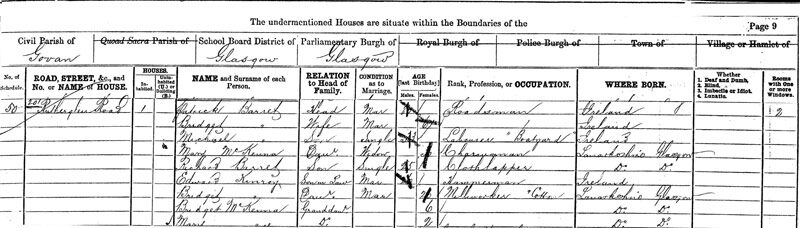 The undermentioned Houses are situate within the Boundaries of the
Page 9
Civil Parish of Quoad Sacra Parish of School Board District of Parliamentary Burgh of Royal Burgh of Police Burgh of Town of Village or Hamlet of
Govan Glasgow Glasgow
No. of Schedule. ROAD, STREET, &c., and No. or NAME of HOUSE. HOUSES. Inhabited. Uninhabited (U.) or Building (B.) NAME and Surname of each Person. RELATION to Head of Family. CONDITION as to Marriage. AGE (Last Birthday) Males. Females. Rank, Profession, or OCCUPATION. WHERE BORN. Whether 1. Deaf and Dumb. 2. Blind. 3. Imbecile or Idiot. 4. Lunatic. Rooms with one or more Windows.
50 Rutherglen Road 1 Head Mar Roadsman Ireland 2
Bridget " Wife Mar Ireland
Michael " Son Single Labourer "Boatyard" Ireland
Mary McKenna Daur Widow Charwoman Lanarkshire Glasgow
Son Single Do. Do.
Edward Son in Law Mar Hammerman Ireland
Bridget " Daur Mar Millworker "Cotton Lanarkshire Glasgow
Bridget McKenna Granddaur 6 Do. Do.
Mary Do. Do. Do.